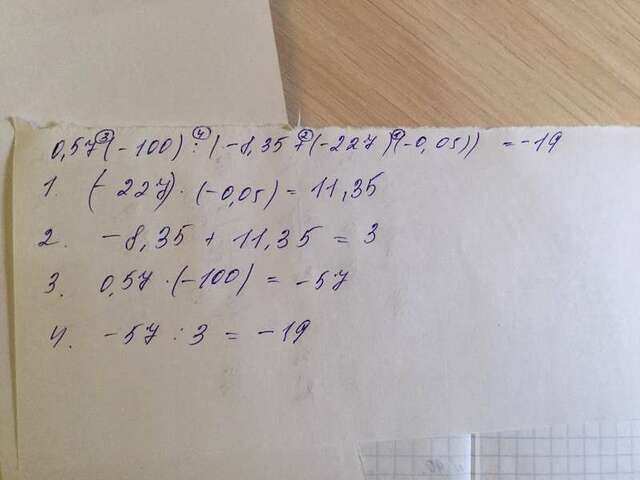 0,57 (-100) : (-8,35 + (-227) (-0,05)) = -19
3 4 2 1
1. (-227) · (-0,05) = 11,35
2. -8,35 + 11,35 = 3
3. 0,57 · (-100) = -57
4. -57 : 3 = -19